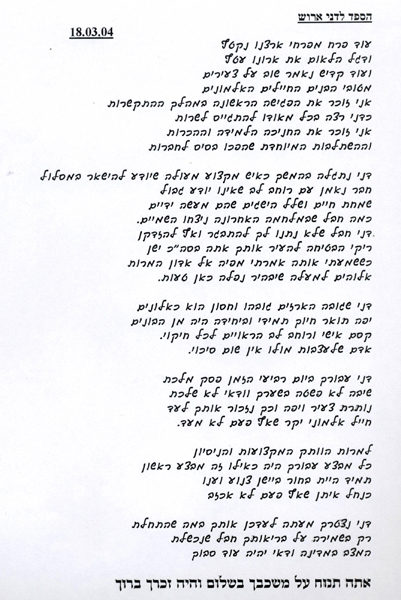 הספד לדני ארוש
18.03.04
עוד פרח מפרחי ארצנו נקטף
ודגל הלאום את ארונו עטף
ועוד קדיש נאמר שוב על צעירים
מטובי הבנים החיילים האלמונים
אני זוכר את הפגישה הראשונה במהלך ההתקשרות
כדני רצה בכל מאודו להתגייס לשרות
אני זוכר את החניכה הלמידה וההכרות
וההשתלבות המיוחדת שהפכו בסיס לחברות
דני נתגלה בהמשך כאיש מקצוע מעולה שיודע להישאר במסלול
חבר נאמן עם רוחב לב שאינו יודע גבול
שמחת חיים ושלל הישגים שהם מעשה ידיים
כמה חבל שבמלחמה האחרונה ניצחו השמיים.
דני חבל שלא נתנו לך להתבגר ואף להזדקן.
ריקי הבטיחה להעיר אותך אתה בסה"כ ישן
כששמעתי אותה אמרתי מפיה אל אדון המרות
אלוהים למעלה שיבהיר נפלה כאן טעות.
דני שגובה הארזים גובהו וחסון הוא כאלונים
יפה תואר חיוך תמידי וביחידה היה מן הבונים
קסם אישי ורוחב לב הראויים לכל חיקוי.
אדם שלעצבות מולו אין שום סיכוי.
דני עבורך ביום רביעי הזמן פסק מלכת
שיבה לא פשטה בשערך וודאי לא שלכת
נותרת צעיר ויפה וכך נזכור אותך לעד
חייל אלמוני יקר שאף פעם לא מעד.
למרות הוותק המקצועות והניסיון
כל מבצע עבורך היה כאילו זה מבצע ראשון
תמיד היית בחור ביישן צנוע וענו
כנחל איתן שאף פעם לא אכזב
דני נצטרך מעתה לעדכן אותך במה שהתחלת
רק בשמירה על בריאותך חבל שנכשלת
המצב במדינה ודאי יהיה עוד סבוך
אתה תנוח על משכבך בשלום והיה זכרך ברוך